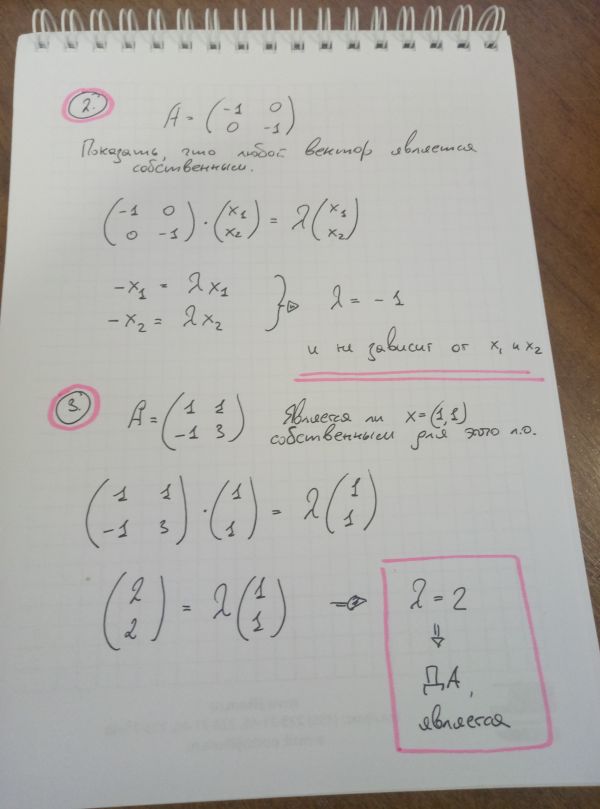 2.
A = (-1 0
0 -1)
Показать, что любой вектор является
собственным.
(-1 0
0 -1) · (x₁
x₂) = λ (x₁
x₂)
-x₁ = λx₁
-x₂ = λx₂
} ⇒ λ = -1
и не зависит от x₁ и x₂
3.
A = (1 1
-1 3)
Является ли x = (1,1)
собственным для этого л.о.
(1 1
-1 3) · (1
1) = λ (1
1)
(2
2) = λ (1
1)
⇒ λ = 2
⇓
ДА,
является